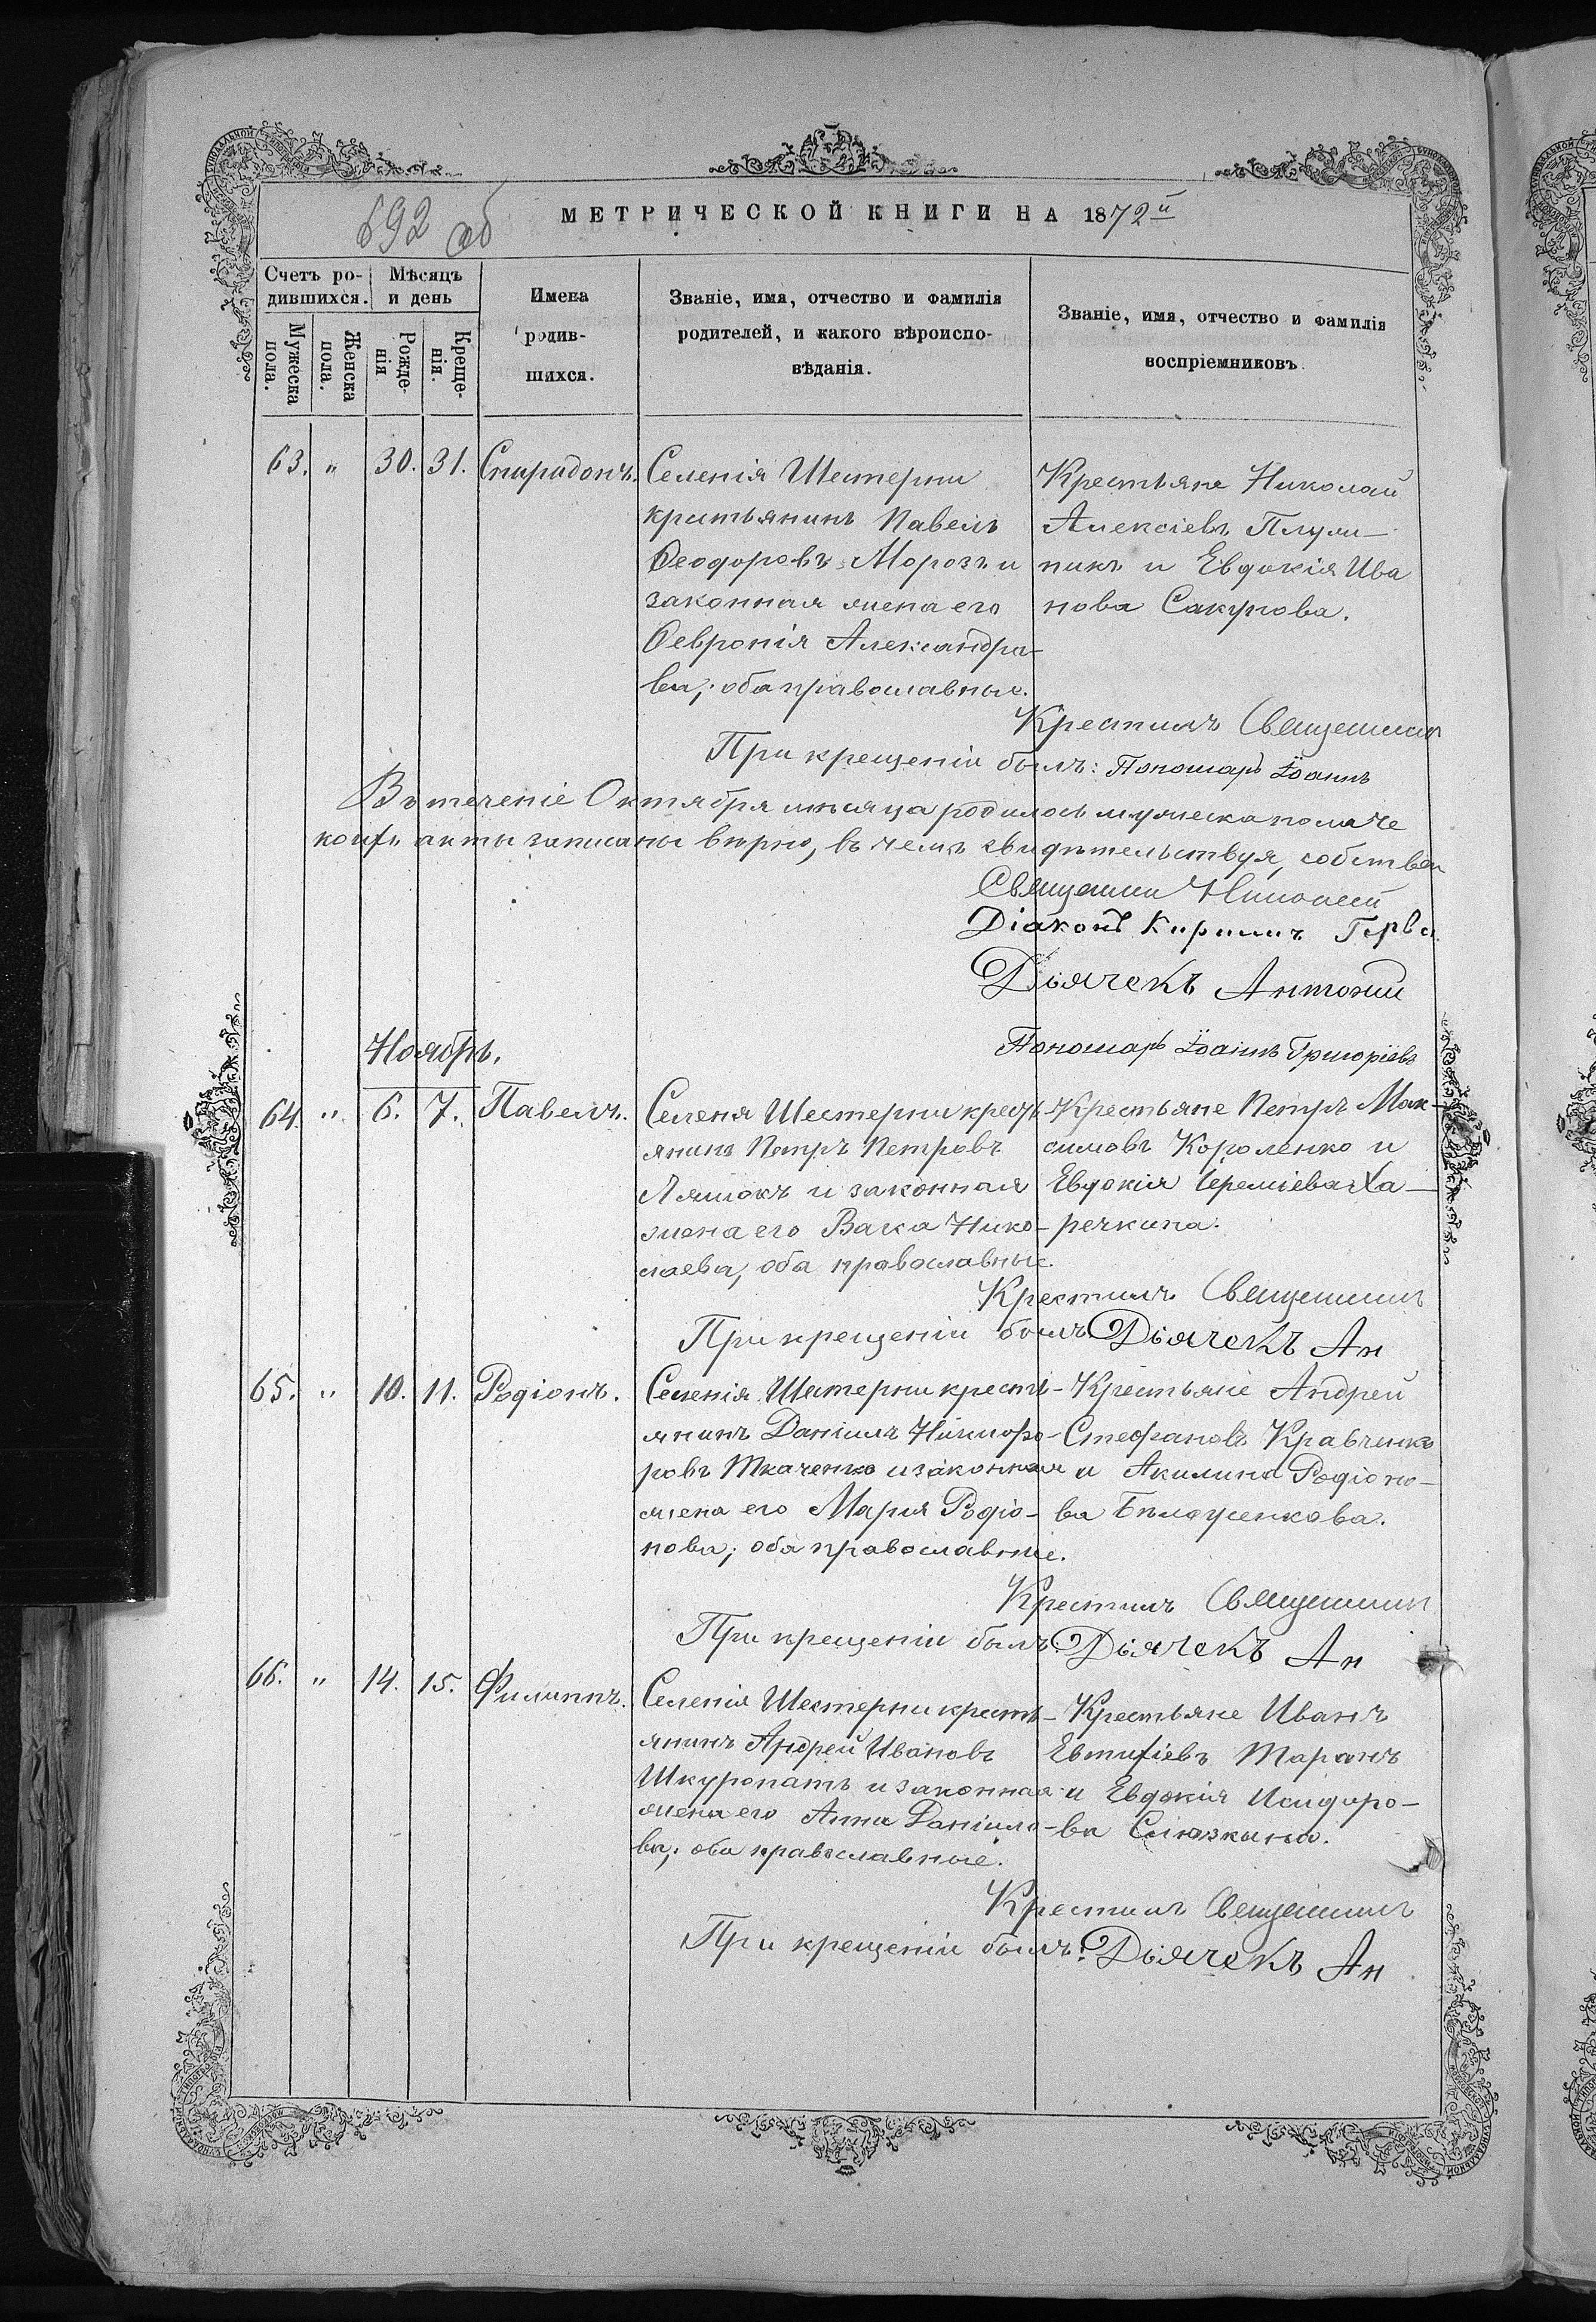 692 об
МЕТРИЧЕСКОЙ КНИГИ НА 1872й
Счетъ ро-
дившихся.
Мѣсяцъ
и день
Мужеска
пола.
Женска
пола.
Рожде-
нія
Креще-
нія.
Имена
родив-
шихся.
Званіе, имя, отчество и фамилія
родителей, и какого вѣроиспо-
вѣданія.
Званіе, имя, отчество и фамилія
воспріемниковъ
63. " 30. 31. Спиридонъ.
Селенія Шестерни
кристьянинъ Павелъ
Ѳеодоровъ Морозъ и
законная жена его
Ѳевронія Александро-
ва; оба православные.
Крестьяне Николай
Алексіевъ Плули-
никъ и Евдокія Ива
нова Сакунова.
Крестилъ Священник
При крещеніи былъ: Пономаръ Іоаннъ
Въ теченіе Октября мѣсяца родилось мужеска пола че
коихъ акты записаны вѣрно, въ чемъ свидѣтельствуя, собствен
Священник Николай
Діаконъ Кириллъ Герва
Дьячекъ Антоній
Пономаръ Іоаннъ Григоріевъ
Ноябрь.
64. " 6. 7. Павелъ.
Селеня Шестерни кресть-
янинъ Петръ Петровъ
Ляшокъ и законная
жена его Васса Нико-
лаева, оба православные.
Крестьяне Петръ Мак-
симовъ Короленко и
Евдокія Іереміева Ха-
речкина.
Крестилъ Священник
При крещеніи былъ Дьячекъ Ан
65. " 10. 11. Родіонъ.
Селенія Шестерни кресть-
янинъ Даніилъ Никифо-
ровъ Ткаченко и законная
жена его Марія Родіо-
нова; оба православные.
Крестьяне Андрей
Стефановъ Кравченко
и Акилина Родіоно-
ва Бѣлоусенкова.
Крестилъ Священник
При крещеніи былъ Дьячекъ Ан
66. " 14. 15. Филиппъ.
Селенія Шестерни кресть-
янинъ Андрей Ивановъ
Шкуропатъ и законная
жена его Анна Даніило-
ва; оба православные.
Крестьяне Иванъ
Евтифіевъ Таранъ
и Евдокія Исидоро-
ва Слюзкина.
Крестилъ Священник
При крещеніи былъ: Дьячекъ Ан